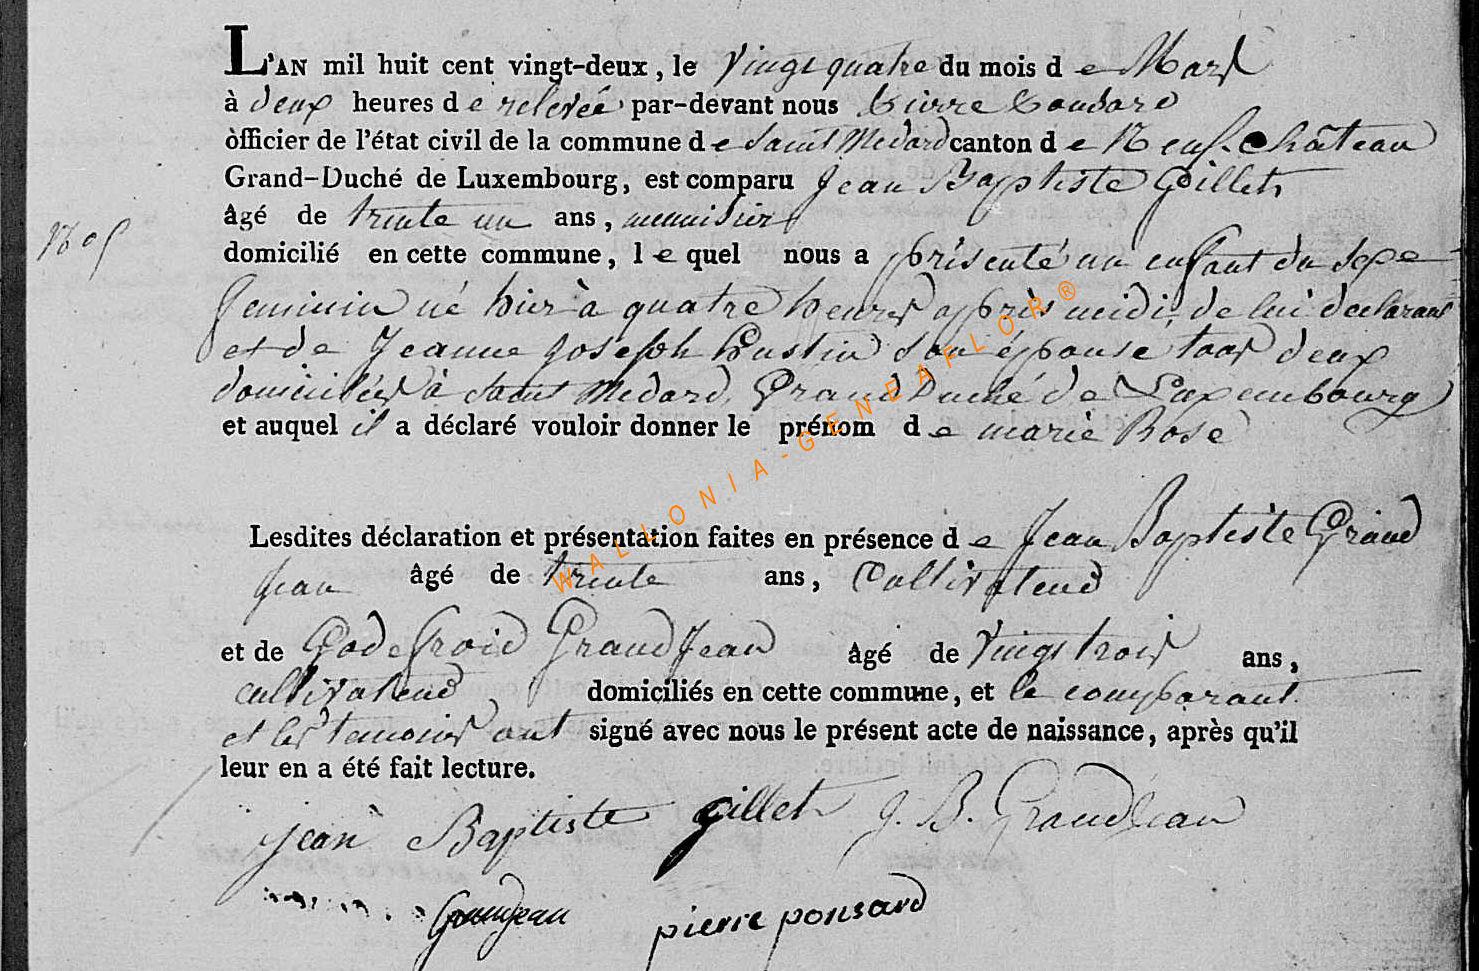 L'AN mil huit cent vingt-deux, le vingt quatre du mois de Mars
à deux heures de relevée par-devant nous Pierre Ponsard
officier de l'état civil de la commune de Saint Medard canton de Neufchâteau
Grand-Duché de Luxembourg, est comparu Jean Baptiste Gillet
âgé de trente un ans, menuisier
domicilié en cette commune, lequel nous a présenté un enfant du sexe
feminin né hier à quatre heures après midi, de lui declarant
et de Jeanne Joseph Pustin son épouse tous deux
domiciliés à Saint Medard, Grand Duché de Luxembourg
et auquel il a déclaré vouloir donner le prénom de marie Rose
Lesdites déclaration et présentation faites en présence de Jean Baptiste Grand
jean âgé de trente ans, Cultivateur
et de Godefroid Grandjean âgé de vingt trois ans,
cultivateur domiciliés en cette commune, et le comparant
et les temoins ont signé avec nous le présent acte de naissance, après qu'il
leur en a été fait lecture.
jean Baptiste gillet J. B. GrandJean
Grandjean pierre ponsard
WALLONIA-GENEAFLOR®